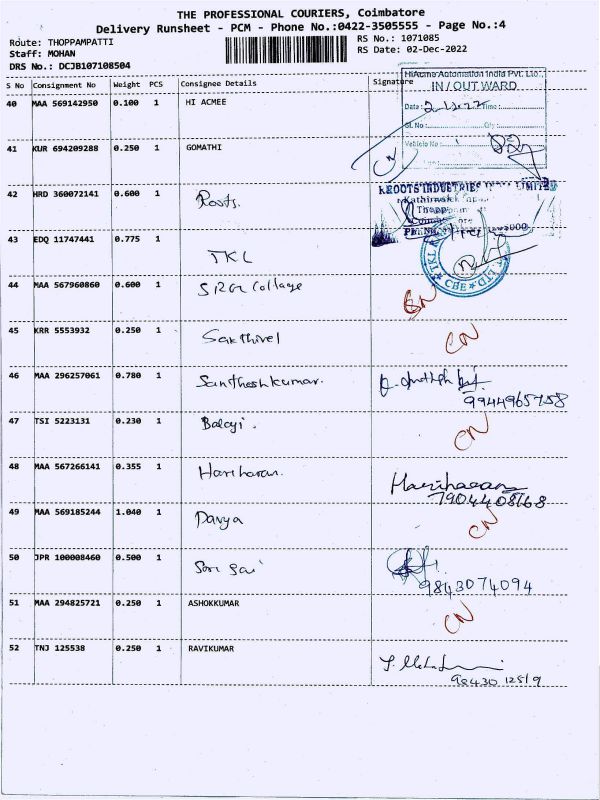 THE PROFESSIONAL COURIERS, Coimbatore
Delivery Runsheet - PCM - Phone No.:0422-3505555 - Page No.:4
Route: THOPPAMPATTI
Staff: MOHAN
DRS No.: DCJB107108504
RS No.: 1071085
RS Date: 02-Dec-2022
S No Consignment No Weight PCS Consignee Details Signature
HiAcme Automation India Pvt. Ltd.,
IN / OUT WARD
Date : Time :
Sl. No : Qty :
Vehicle No :
40 MAA 569142950 0.100 1 HI ACMEE
41 KUR 694209288 0.250 1 GOMATHI CN
42 HRD 360072141 0.600 1 Roots.
ROOTS INDUSTRIES LIMITED
43 EDQ 11747441 0.775 1 TKL
TKL CBE LTD
44 MAA 567960860 0.600 1 College CN
45 KRR 5553932 0.250 1 Sakthivel CN
46 MAA 296257061 0.780 1 Santhoshkumar.
9944965758
47 TSI 5223131 0.230 1 Balaji. CN
48 MAA 567266141 0.355 1 Hariharan. Hariharan
7904408168
49 MAA 569185244 1.040 1 Divya CN
50 JPR 100008460 0.500 1 Sai
9843074094
51 MAA 294825721 0.250 1 ASHOKKUMAR CN
52 TNJ 125538 0.250 1 RAVIKUMAR
98430 12519